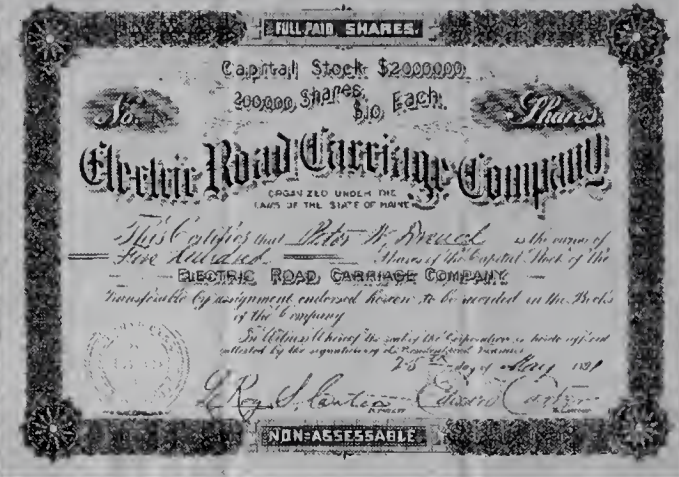 FULL PAID SHARES.
Capital Stock $2000000
200,000 Shares, $10 Each.
No. Shares
Electric Road Carriage Company
ORGANIZED UNDER THE
LAWS OF THE STATE OF MAINE
This Certifies that Peter W. is the owner of
Five Hundred Shares of the Capital Stock of the
ELECTRIC ROAD CARRIAGE COMPANY
Transferable by assignment endorsed hereon to be recorded in the Books
of the Company
In Witness Whereof the seal of the Corporation is hereto affixed
attested by the signatures of its President and Treasurer
25th day of May 1891
NON-ASSESSABLE